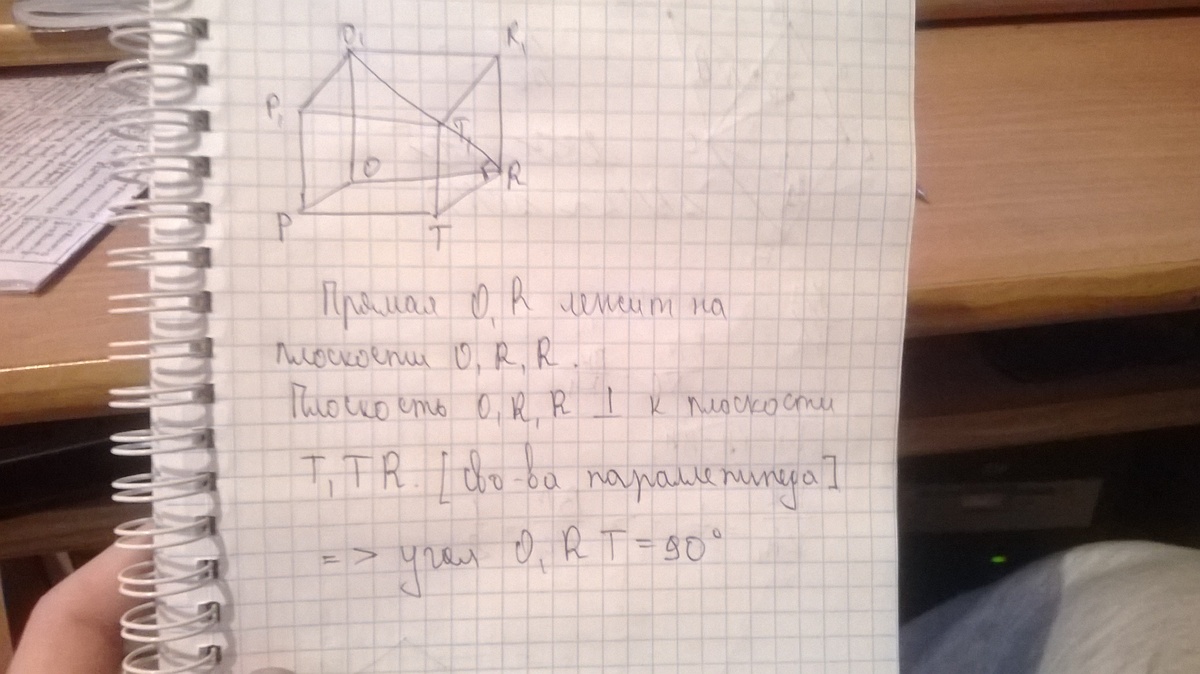 O₁ R₁
P₁ T
O R
P T
Прямая O₁R лежит на
плоскости O₁R₁R.
Плоскость O₁R₁R ⊥ к плоскости
T₁TR. [сво-ва параллепипеда]
=> угол O₁RT = 90°